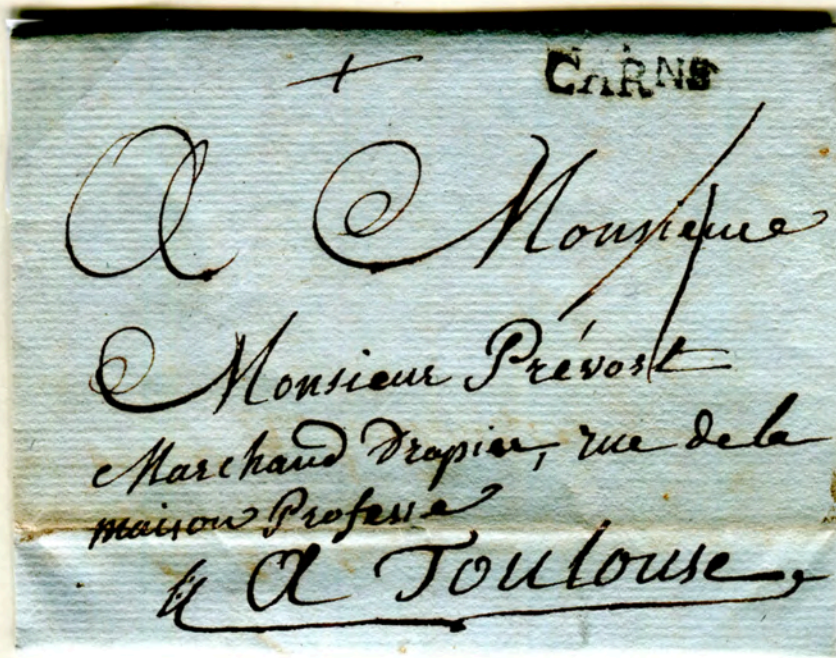 CARNE
A Monsieur
Monsieur Prévost
Marchand Drapier, rue de la
maison Professe
A Toulouse